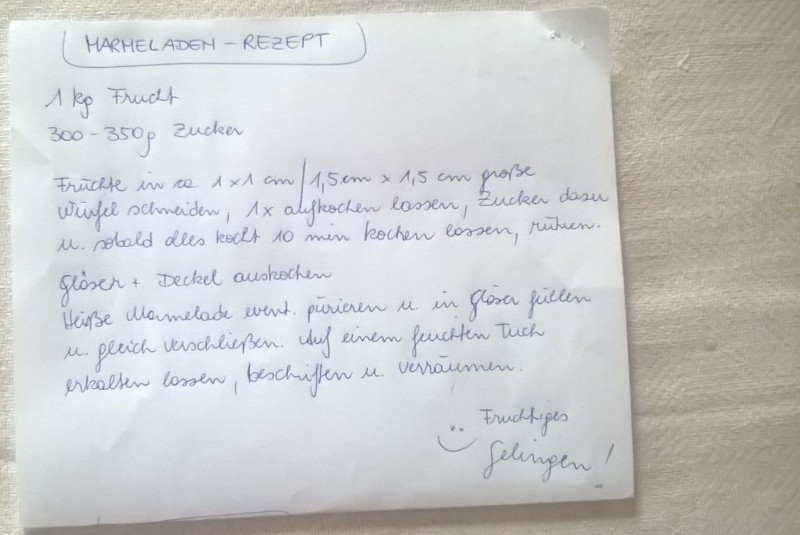 MARMELADEN – REZEPT
1 kg Frucht
300 – 350g Zucker
Früchte in ca. 1 x 1 cm / 1,5 cm x 1,5 cm große
Würfel schneiden, 1x aufkochen lassen, Zucker dazu
u. sobald alles kocht 10 min kochen lassen, rühren.
Gläser + Deckel auskochen
Heiße Marmelade event. pürieren u. in Gläser füllen
u. gleich verschließen. Auf einem feuchten Tuch
erkalten lassen, beschriften u. verräumen.
Fruchtiges
Gelingen!